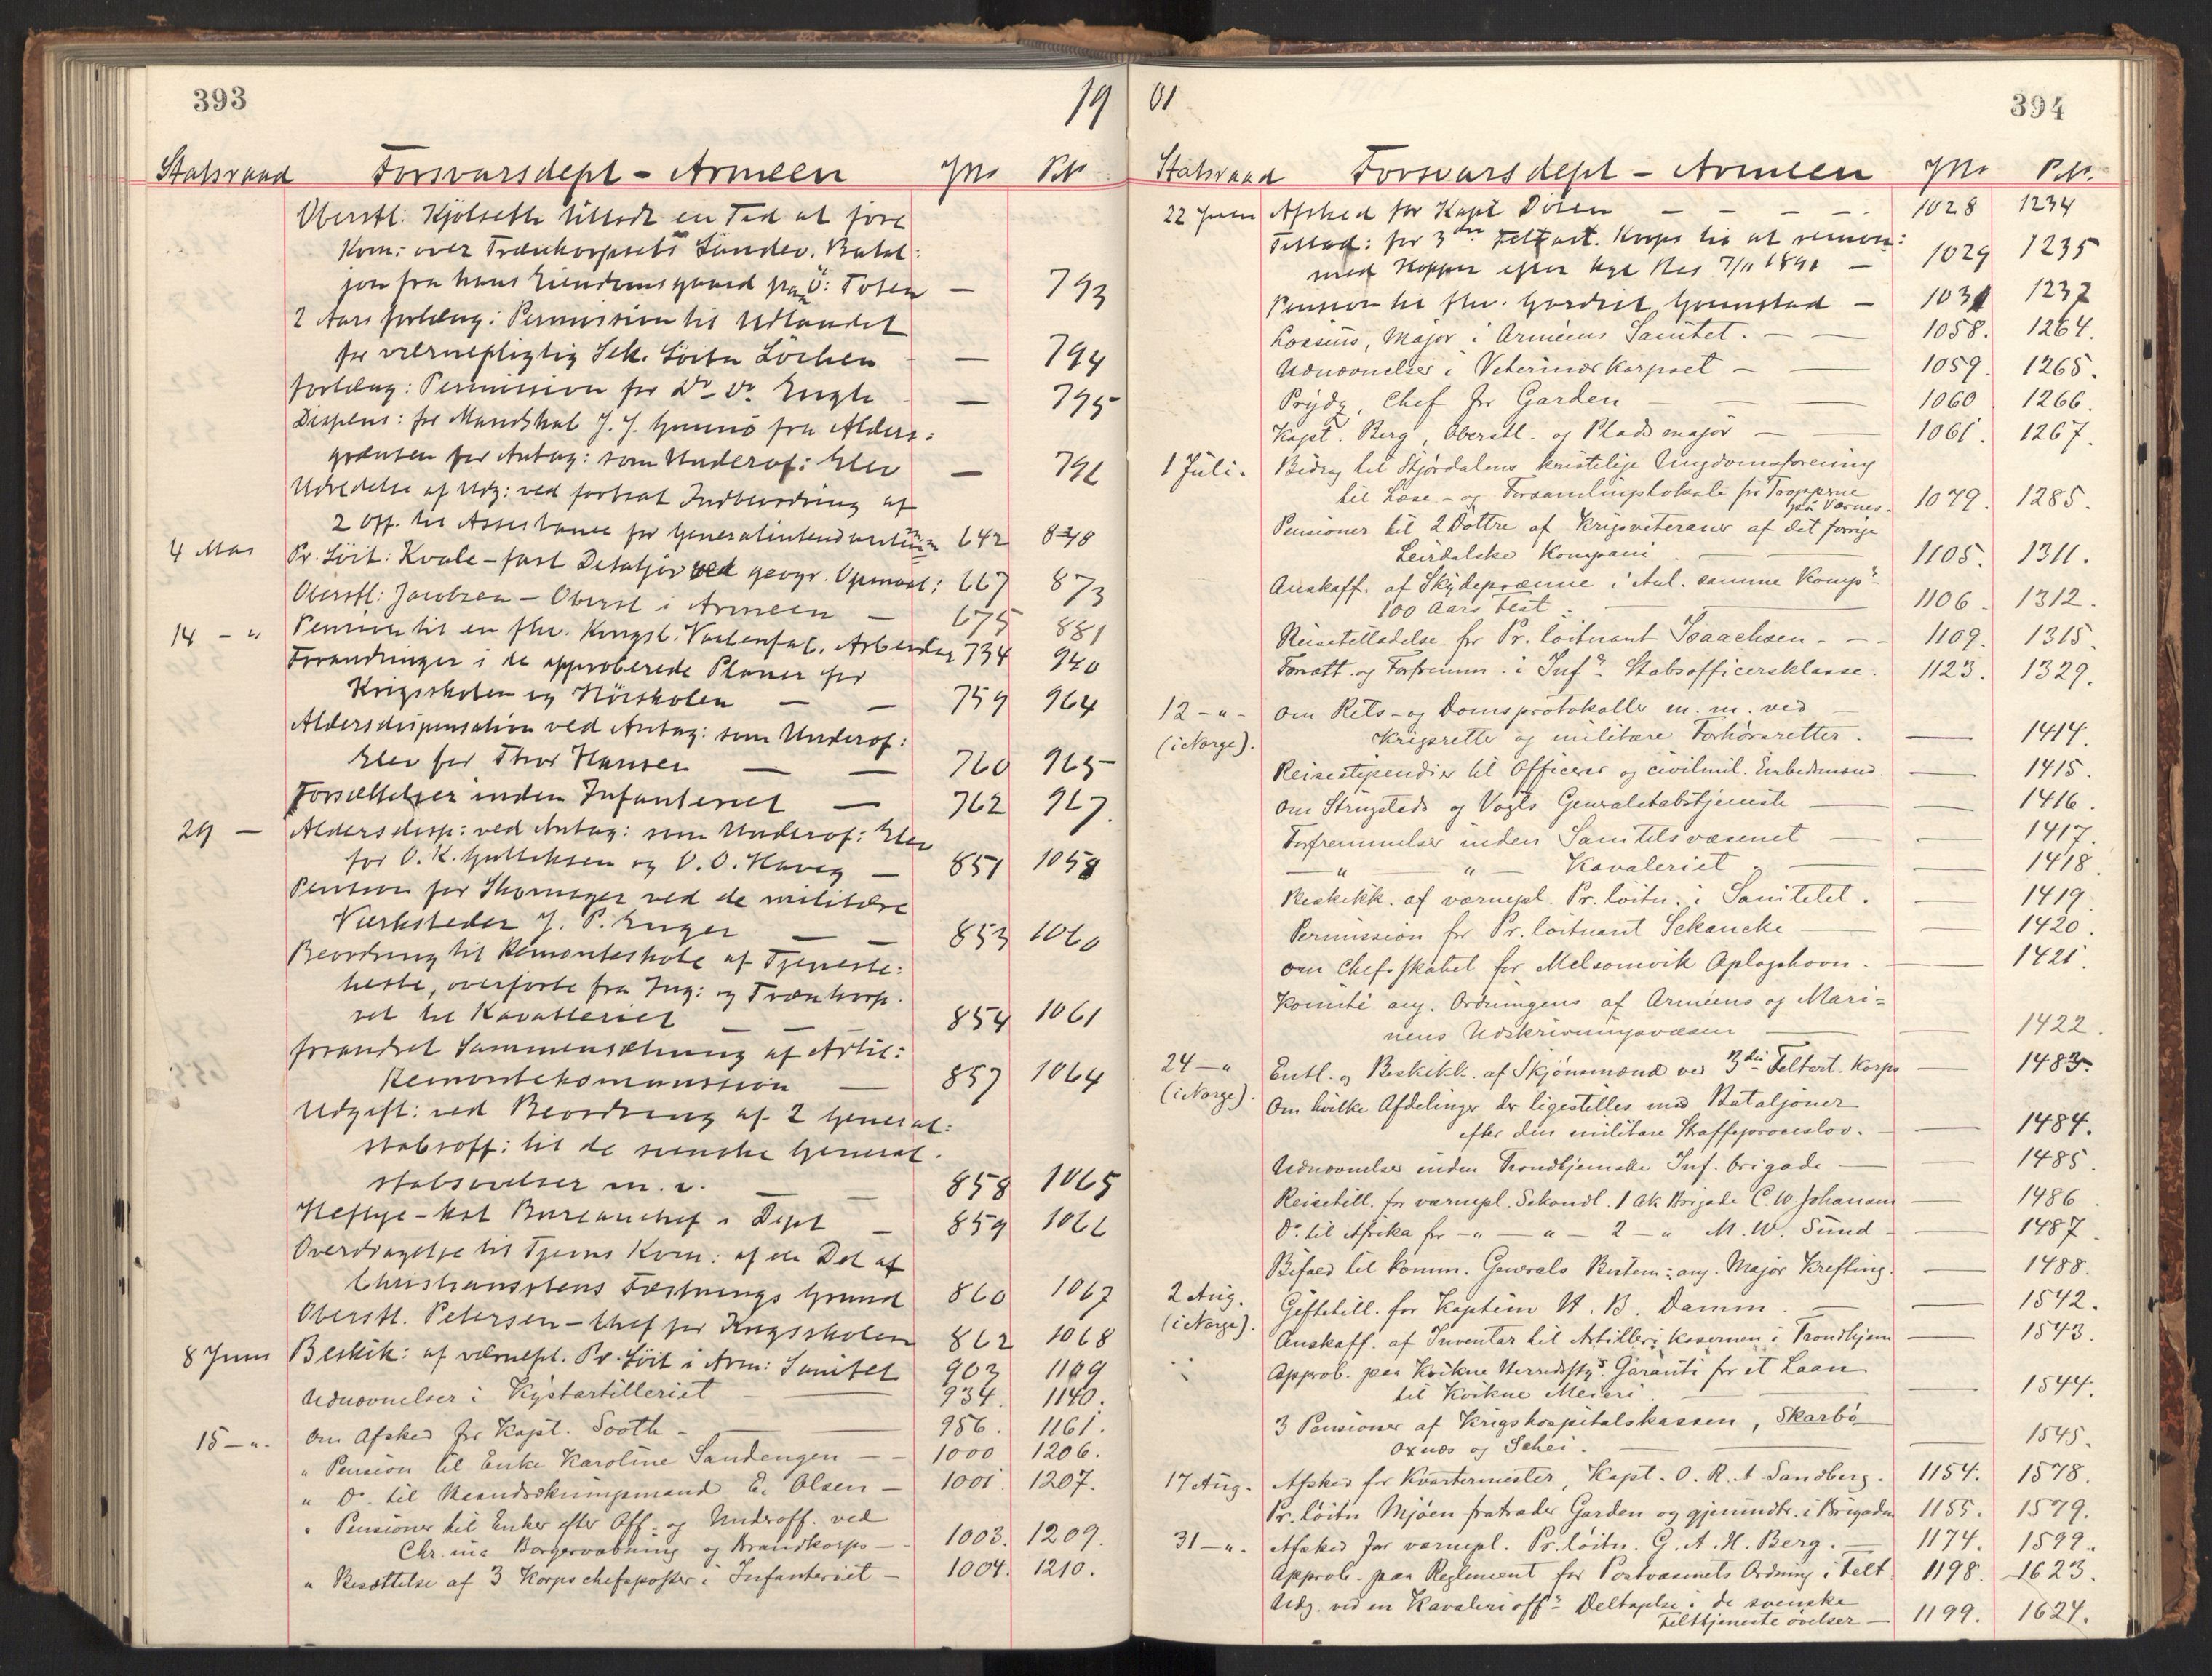 393
19
Statsraad Forsvarsdept - Armeen JNo PNo
Oberstl: Kjölseth tilladt en Tid at före
Kom: over Trænkorpsets Landev. Batal:
jon fra hans Eiendomsgaard paa Ö: Toten — 793
2 Aars forlæng: Permission til Udlandet
for værnepligtig Sek. Löitn Löchen — 794
Forlæng: Permission for Do Do Engh — 795
Dispens: for Mandskab J. J. fra Alders:
grænsen for Antag: som Underof: Elev — 796
Udredelse af Udg: ved fortsat Indbeordring af
2 Off. til Assistance for Generalintendanturen 642 848
4 Mai Pr. Löit: Kvale - fast Detaljör ved geogr. Opmaal: 667 873
Oberstl: Jacobsen - Oberst i Armeen — 675 881
14 - " Pension til en fhv. Kongsb. Vaabenfab. Arbeider 734 940
Forandringer i de approberede Planer for
Krigsskolen og Höiskolen — — 759 964
Aldersdispensation ved Antag: som Underof:
Elev for Thor Hansen — — 760 965
Forsættelser inden Infanteriet — 762 967.
29 — Aldersdisp: ved Antag: som Underof: Elev
for O. K. Gulliksen og O. O. Haveg — 851 1058
Pension for Skomager ved de militære
Værksteder J. P. Enger — — 853 1060
Beordring til Remonteskole af Tjeneste:
heste, overförte fra Ing: og Trænkorp.
set til Kavalleriet — — 854 1061
forandret Sammensætning af Artil:
Remontekommission — 857 1064
Udgift: ved Beordring af 2 General:
stabsoff: til de svenske General.
stabsövelser m. v. — — 858 1065
Heftye - kst Bureauchef i Dept — 859 1066
Overdragelse til Tjenns Kom: af en Del af
Christianstens Fæstnings Grund 860 1067
Oberstl. Petersen - Chef for Krigsskolen 862 1068
8 Juni Beskik: af værnepl. Pr. Löit i Arm: Sanitet 903 1109
Udnævnelser i Kystartilleriet — 934. 1140.
15 — " . Om Afsked for Kapt. Sooth - — 956. 1161.
" Pension til Enke Karoline Sandengen — - 1000 1206.
" Do. til E. Olsen — 1001. 1207.
" Pensioner til Enker efter Off- og Underoff. ved
Chr.nia Borgervæbning og Brandkorps — 1003. 1209.
" Besættelse af 3 Korpschefsposter i Infanteriet — 1004. 1210.
01
394
Statsraad Forsvarsdept - Armeen JNo PNo.
22 Juni Afsked for Kapt Dören — — — — 1028 1234
Tillad: for 3die Feltart. Korps til at remon:
med Hopper efter kgl Res 7/11 1891 — 1029 1235
Pension til fhv. Gardist Grimstad — 1031 1237
Lossius, Major i Arméens Sanitet. — — 1058. 1264.
Udnævnelser i Veterinærkorpset — — 1059. 1265.
Prÿdz, Chef for Garden — — 1060 1266.
Kapt. Berg, Oberstl. og Pladsmajor — — 1061. 1267.
1 Juli. Bidrag til Stjördalens kristelige Ungdomsforening
til Læse- og Forsamlingslokale for Tropperne
paa Værnes. 1079. 1285.
Pensioner til 2 Döttre af Krigsveteraner af det forrige
Leirdalske Kompani — — 1105. 1311.
Anskaff. af Skydepræmie i Anl. samme Komps
100 Aars Fest. — 1106. 1312.
Reisetilladelse for Pr. löitnant Isaachsen - - - 1109. 1315.
Forsætt. og Forfremm. i Infs Stabsofficersklasse. 1123. 1329.
12 - " - Om Rets- og Domsprotokoller m. m. ved —
(i Norge). Krigsretter og militære Forhörsretter. — 1414.
Reisestipendier til Officerer og civilmil. Embedsmænd. — 1415.
Om Strugstads og Vogts Generalstabstjeneste — — 1416.
Forfremmelser inden Sanitetsvæsenet — — 1417.
— " — " — Kavaleriet — — 1418.
Beskikk. af værnepl. Pr. löitn. i Sanitetet. — 1419.
Permission for Pr. löitnant Schancke — — 1420.
Om Chefsskabet for Melsomvik Oplagshavn. — 1421.
Komité ang. Ordningens af Arméens og Mari=
nens Udskrivningsvæsen — — 1422.
24 — " Entl. og Beskikk. af Skjönsmænd ved 3die Feltart. Korps — 1483.
(i Norge). Om hvilke Afdelinger der ligestilles med Bataljoner
efter den militære Straffeproceslov. — 1484.
Udnævnelser inden Trondhjemske Inf. brigade — — 1485.
Reisetill. for værnepl. Sekondl. 1 Ak Brigade C. W. Johansen — 1486
Do. til Afrika for — " — " — 2 — " M. W. Sund — 1487.
Bifald til Komm. Generals Bestem: ang. Major Krefting. — 1488.
2 Aug. Giftetill. for Kaptein H. B. Damm. — — 1542.
(i Norge). Anskaff. af Inventar til Artillerikasernen i Trondhjem — 1543.
Approb. paa Kvikne Herredsstys. Garanti for et Laan
til Kvikne Meieri — — 1544.
3 Pensioner af Krigshospitalskassen, Skarbö
Oxnæs og Schei. — — 1545.
17 Aug. Afsked for Kvartermester, Kapt. O. R. A Sandberg. 1154. 1578.
Pr. löitn Mjöen fratræder Garden og gjenindtr. i Brigaden 1155. 1579.
31 — ". Afsked for værnepl. Pr. löitn. G. A. H. Berg. — 1174. 1599.
Approb. paa Reglement for Postvæsenets Ordning i Felt. 1198. 1623.
Udg. ved en Kavalerioffs Deltagelse i de svenske
Felttjenesteövelser — 1199. 1624.